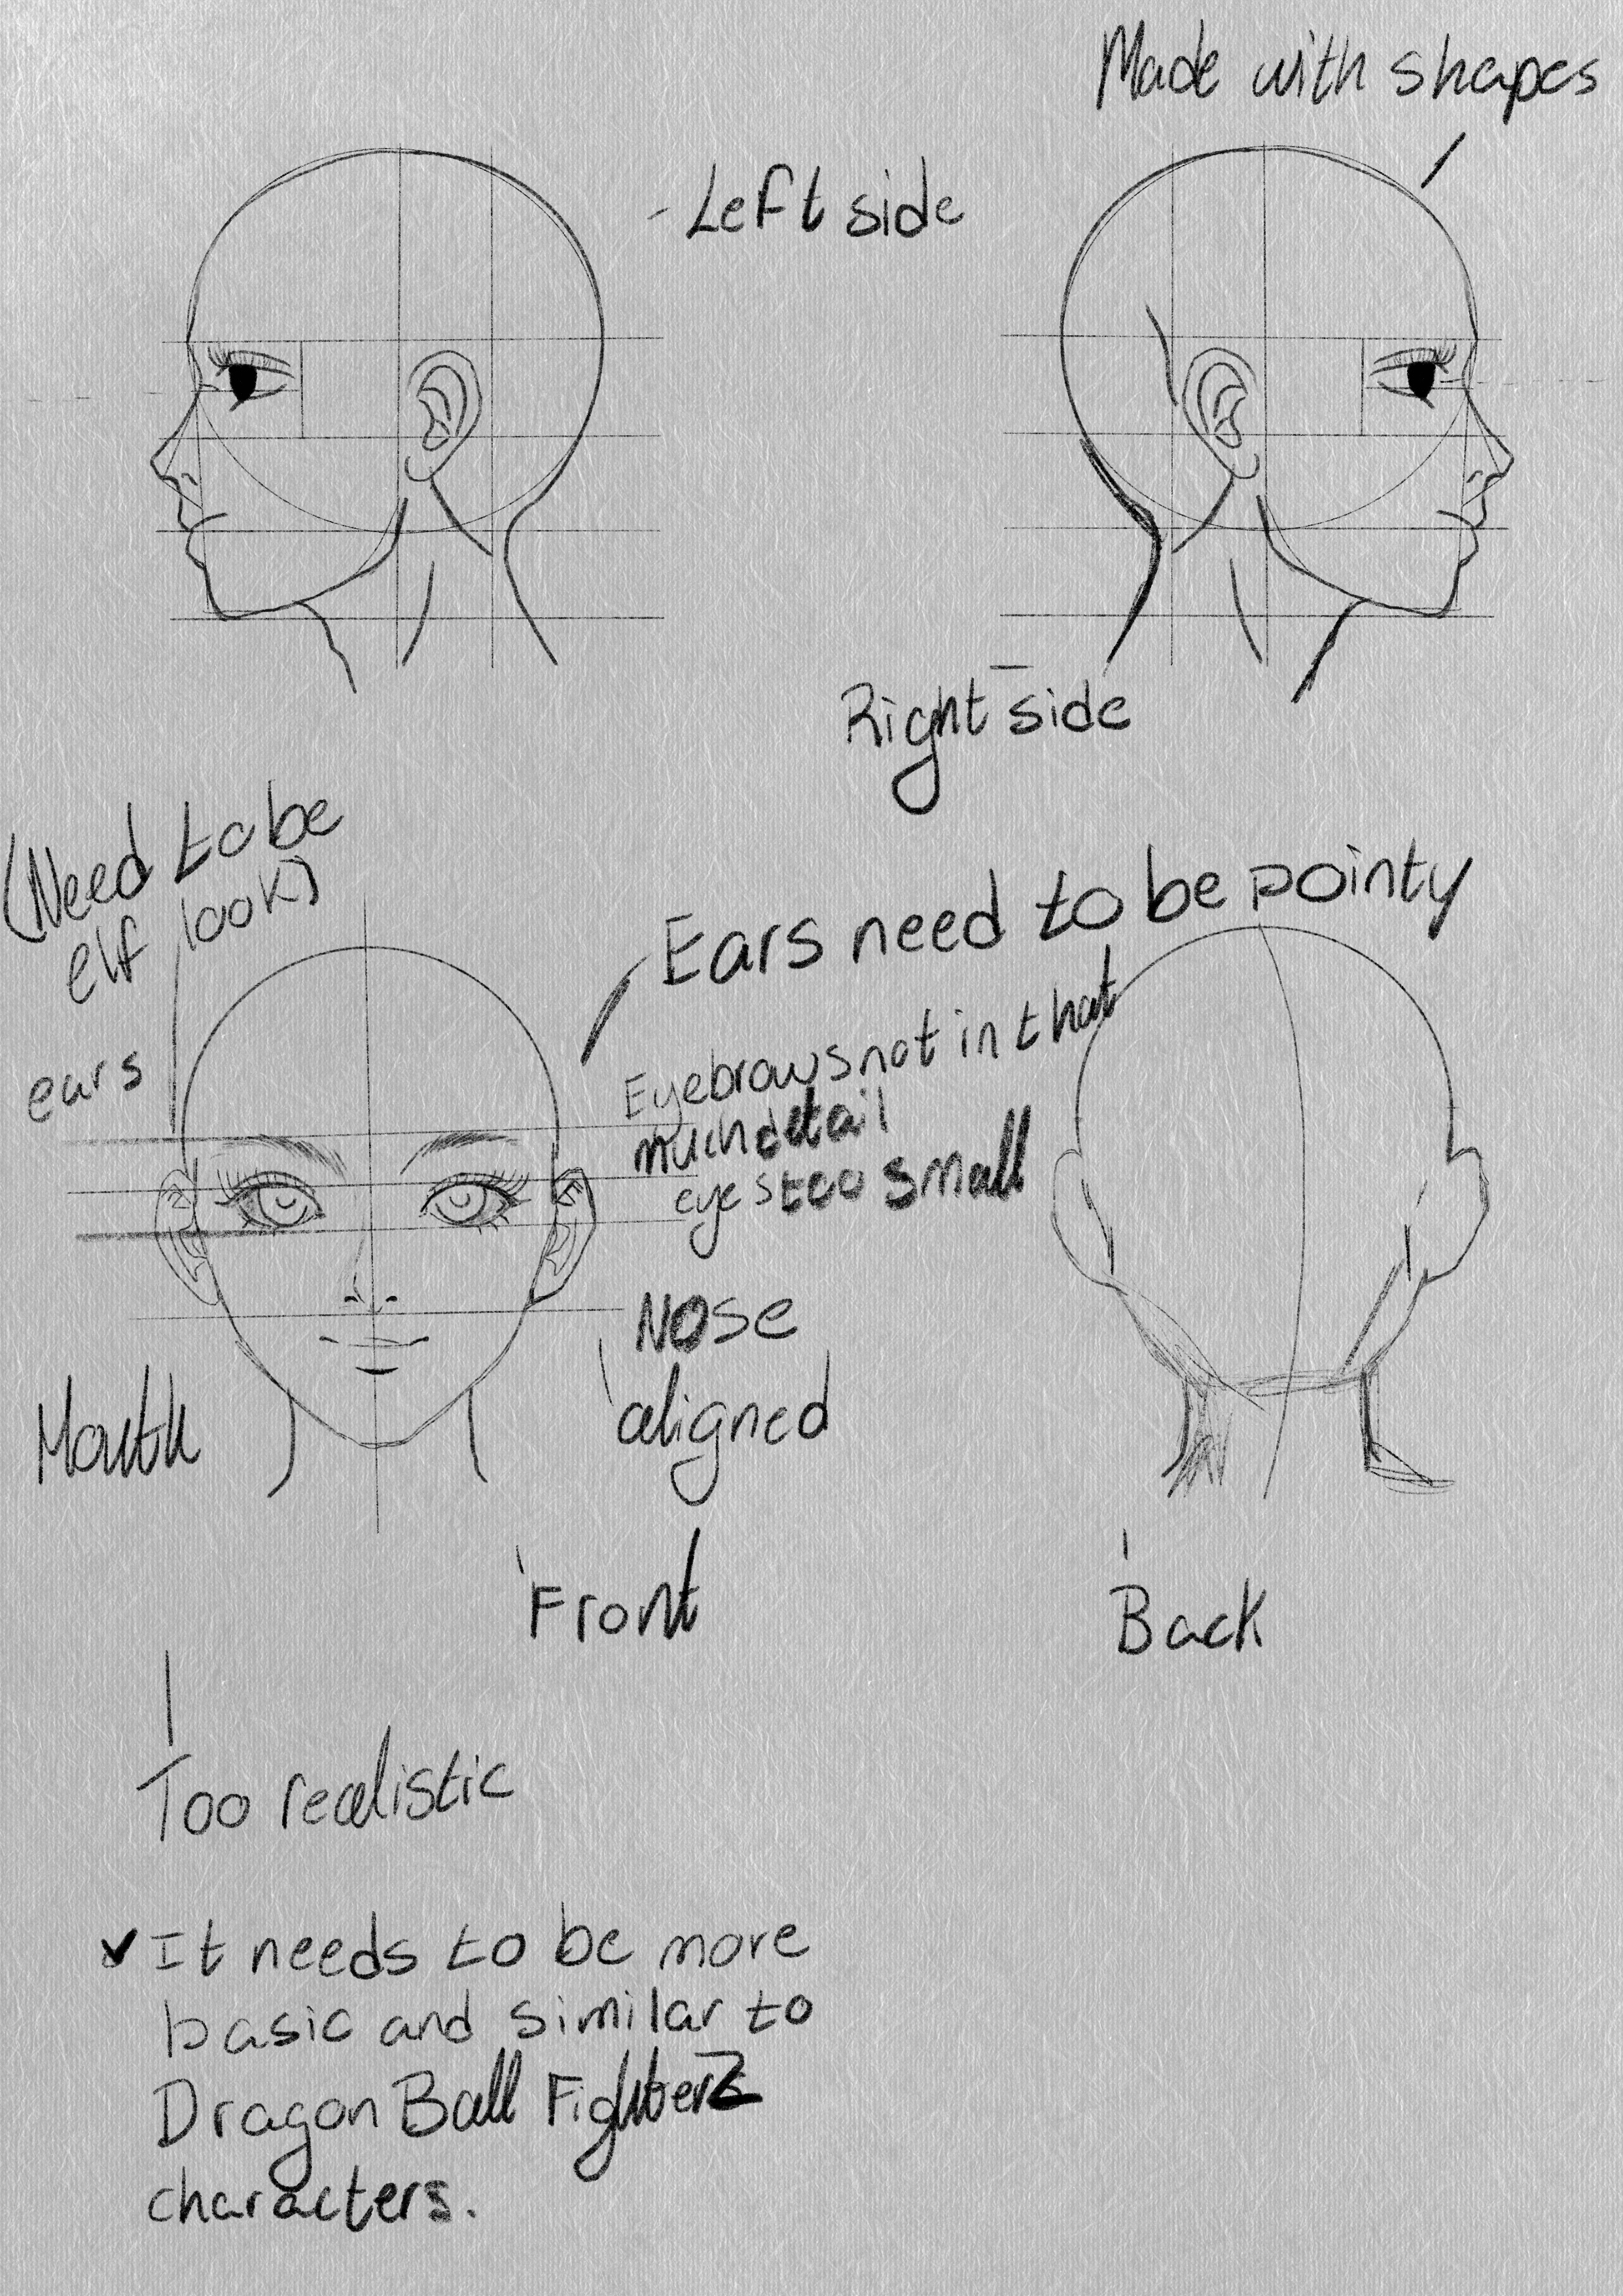 Made with shapes
Left side
Right side
(Need to be
elf look)
ears
Ears need to be pointy
Eyebrows not in that
much detail
eyes too small
Nose
aligned
Mouth
Front
Back
Too realistic
✓ It needs to be more
basic and similar to
Dragon Ball FighterZ
characters.